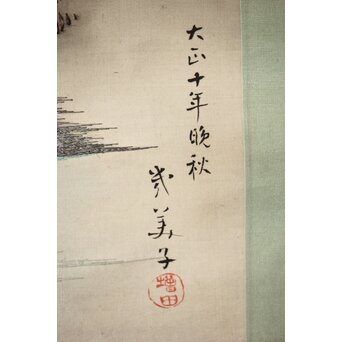 大正十年晩秋
幾美子
増田